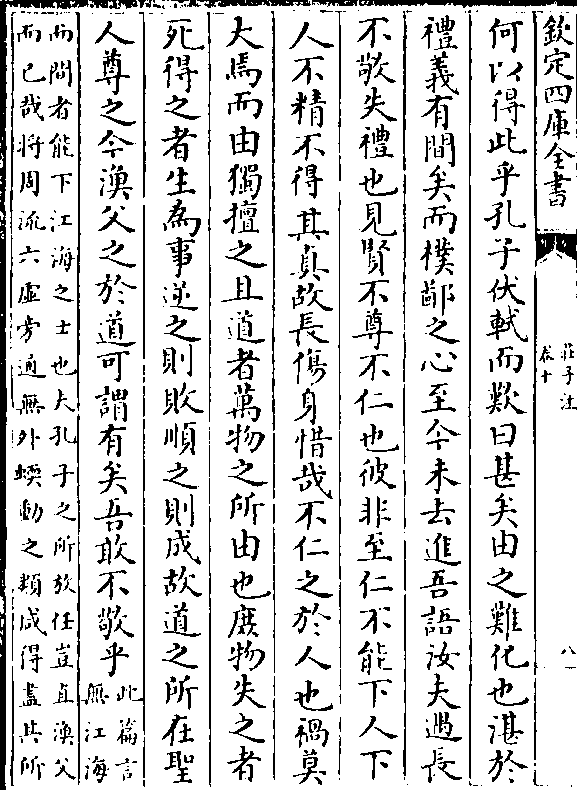 欽定四庫全書
莊子注
卷十
八
何以得此乎孔子伏軾而歎曰甚矣由之難化也湛於
禮義有間矣而樸鄙之心至今未去進吾語汝夫遇長
不敬失禮也見賢不尊不仁也彼非至仁不能下人下
人不精不得其真故長傷身惜哉不仁之於人也禍莫
大焉而由獨擅之且道者萬物之所由也庶物失之者
死得之者生為事逆之則敗順之則成故道之所在聖
人尊之今漁父之於道可謂有矣吾敢不敬乎
此篇言
無江海
而間者能下江海之士也夫孔子之所放任豈直漁父
而已哉將周流六虛旁通無外蠕動之類咸得盡其所